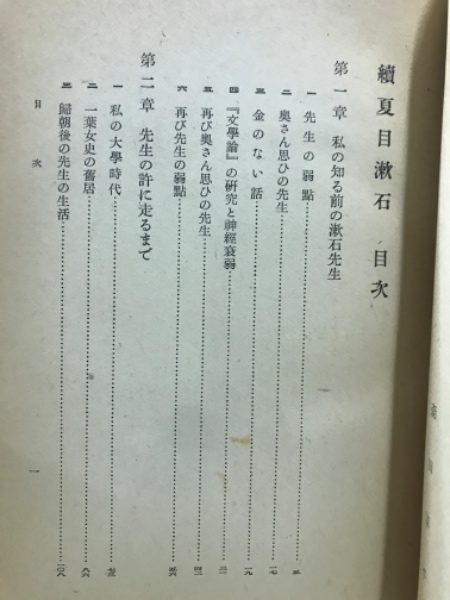 續夏目漱石 目次
第一章 私の知る前の漱石先生
一 先生の弱點
二 奥さん思ひの先生 一七
三 金のない話 一九
四 『文學論』の研究と神經衰弱 三一
五 再び奥さん思ひの先生 四二
六 再び先生の弱點 五六
第二章 先生の許に走るまで
一 私の大學時代 七三
二 一葉女史の舊居 八六
三 歸朝後の先生の生活 一〇八
目次 一